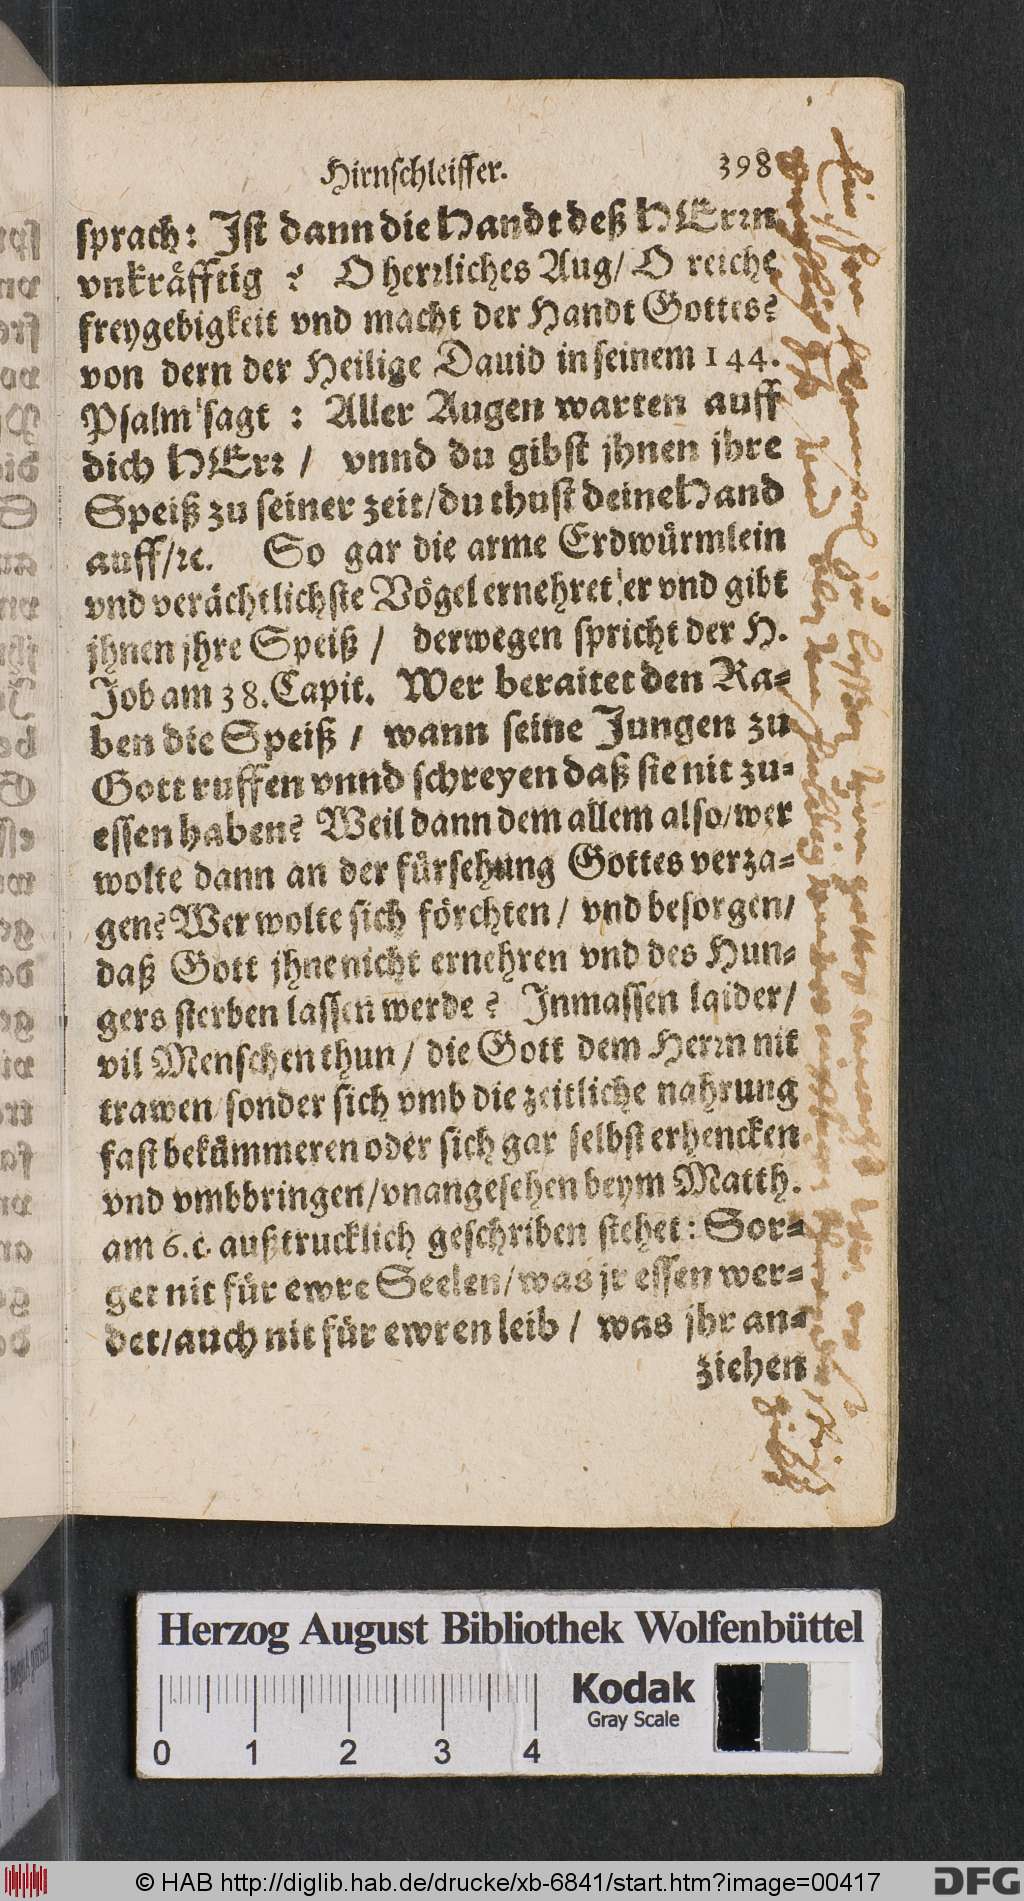 Hirnschleiffer. 398
sprach: Ist dann die Handt deß HErrn
vnkräfftig ? O herrliches Aug/ O reiche
freygebigkeit vnd macht der Handt Gottes?
von dern der Heilige Dauid in seinem 144.
Psalm sagt : Aller Augen warten auff
dich HErr / vnnd du gibst jhnen jhre
Speiß zu seiner zeit/du thust deine Hand
auff/ꝛc. So gar die arme Erdwürmlein
vnd verächtlichste Vögel ernehret er vnd gibt
jhnen jhre Speiß / derwegen spricht der H.
Job am 38. Capit. Wer beraitet den Ra-
ben die Speiß / wann seine Jungen zu
Gott ruffen vnnd schreyen daß sie nit zu-
essen haben? Weil dann dem allem also/wer
wolte dann an der fürsehung Gottes verza-
gen? Wer wolte sich förchten / vnd besorgen/
daß Gott jhne nicht ernehren vnd des Hun-
gers sterben lassen werde ? Inmassen laider/
vil Menschen thun / die Gott dem Herrn nit
trawen/sonder sich vmb die zeitliche nahrung
fast bekümmeren oder sich gar selbst erhencken
vnd vmbbringen/vnangesehen beym Matth.
am 6. c. außtrucklich geschriben stehet: Sor-
get nit für ewre Seelen/was jr essen wer-
det/auch nit für ewren leib / was jhr an-
ziehen
Herzog August Bibliothek Wolfenbüttel
Kodak
Gray Scale
0 1 2 3 4
© HAB http://diglib.hab.de/drucke/xb-6841/start.htm?image=00417
DFG